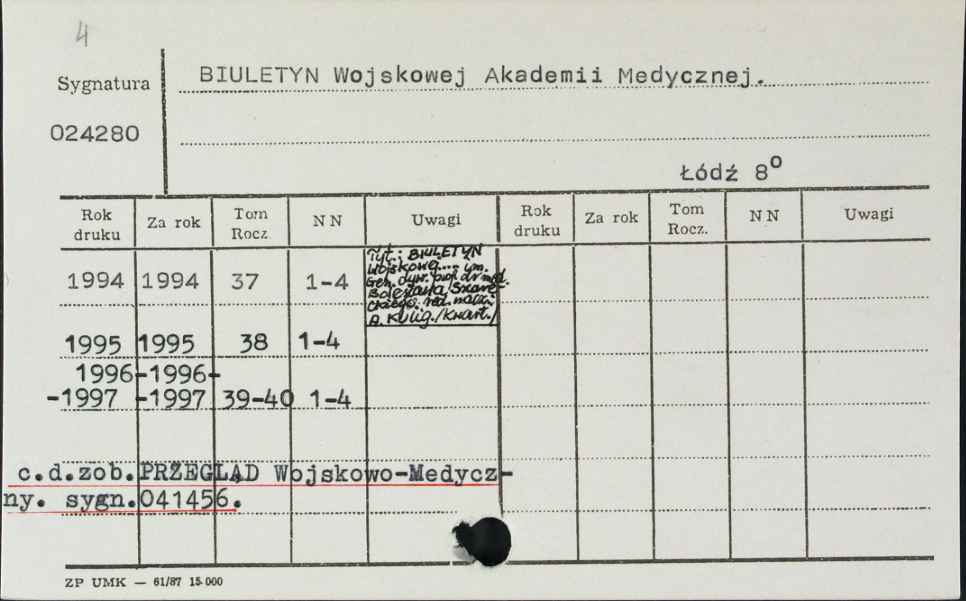 4
Sygnatura
BIULETYN Wojskowej Akademii Medycznej.
024280
Łódź 8°
Rok druku Za rok Tom Rocz. NN Uwagi Rok druku Za rok Tom Rocz. NN Uwagi
1994 1994 37 1-4
Tyt.: BIULETYN
Wojskowa.... im.
Gen. dyw. prof. dr med.
Bolesława Szare-
ckiego. red. nacz.:
A. Kulig./Kwart./
1995 1995 38 1-4
1996- -1996-
-1997 -1997 39-40 1-4
c.d.zob. PRZEGLĄD Wojskowo-Medycz-
ny. sygn. 041456.
ZP UMK — 61/87 15.000